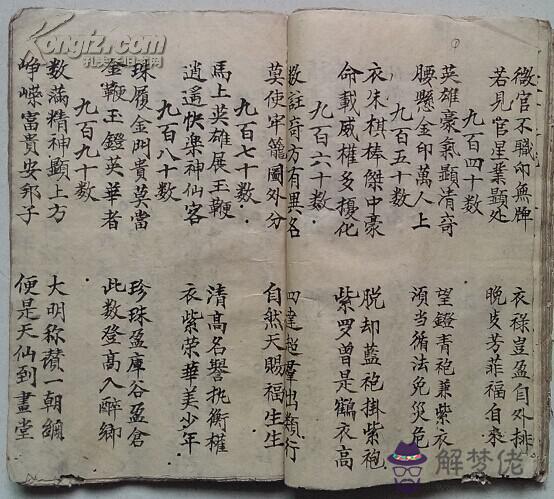 微官不職印無牌 衣祿豈盈自外排
若見官星業顯处 晚歩芳菲福自来
九百四十数
英雄豪氣顯清奇 望鐙青袍兼紫衣
腰懸金印萬人上 須当循法免災危
九百五十数
衣朱棋棒傑中豪 脱却藍袍掛紫袍
命載威權多擾化 紫罗曾是鶴衣高
九百六十数
数註奇方有異名 四達超羣出類行
莫使牢籠圖外分 自然天賜福生生
九百七十数
馬上英雄展玉鞭 清高名譽執衡權
逍遥快楽神仙客 衣紫荣華美少年
九百八十数
珠履金門貴莫當 珍珠盈庫谷盈倉
金鞭玉鐙英華者 此数登高入醉鄉
九百九十数
数滿精神顯上方 大明称讃一朝綱
峥嶸富貴安邦子 便是天仙到畫堂
Kongfz.com
孔夫子旧书网
解梦佬